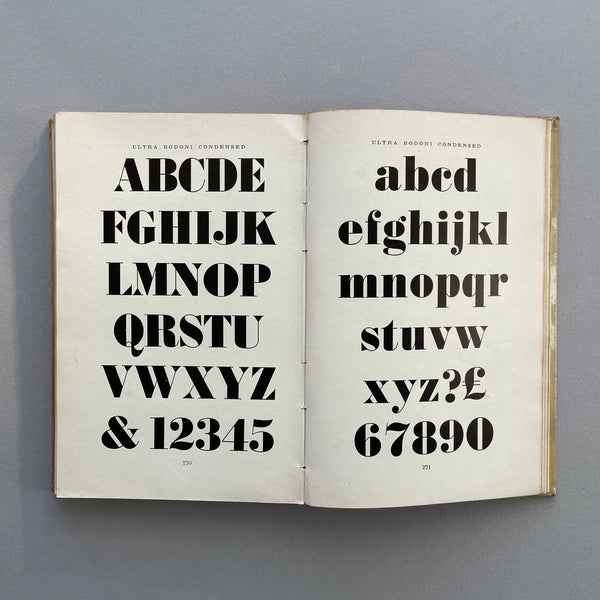 ULTRA BODONI CONDENSED
ABCDE
FGHIJK
LMNOP
QRSTU
VWXYZ
& 12345
270
ULTRA BODONI CONDENSED
abcd
efghijkl
mnopqr
stuvw
xyz?£
67890
271